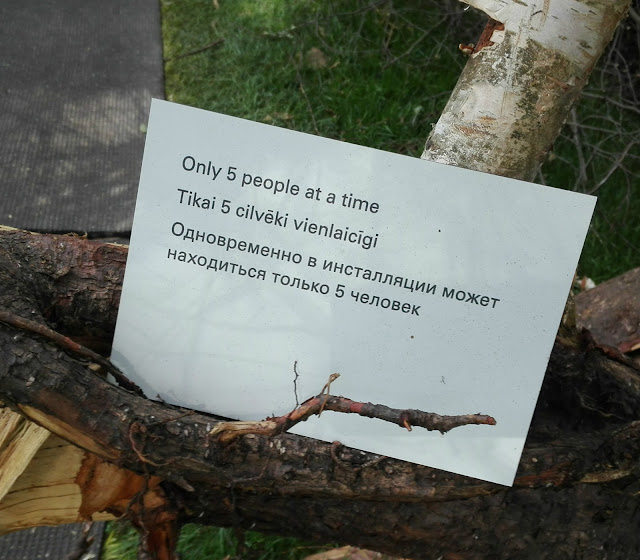 Only 5 people at a time
Tikai 5 cilvēki vienlaicīgi
Одновременно в инсталляции может
находиться только 5 человек